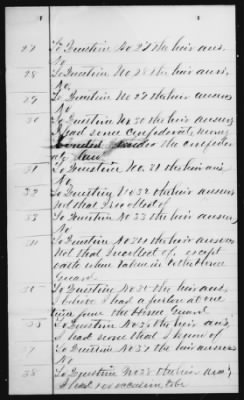 27 To Question No 27 the heir ans,
No,
28 To Question No 28 the heir ans,
No,
29 To Question No 29 the heir answers
No,
30 To Question No 30 the heir answers
I had some Confederate money
under the confederate
law
31 To Question No. 31 the heir ans,
No.
32 To Question No 32 the heir answers
Not that I recollect of
33 To Question No 33 the heir answers,
No,
34 To Question No 34 the heir answers
Not that I recollect of, except
oath when taken in the Home
Guard.
35 To Question No 35 the heir ans,
I believe I had a furlon at one
time from the Home Guard
36 To Question No 36 the heir ans,
I had none that I know of
37 To Question No 37 the heir answers
No
38 To Question No 38 the heir ans;
I had no occasion to be